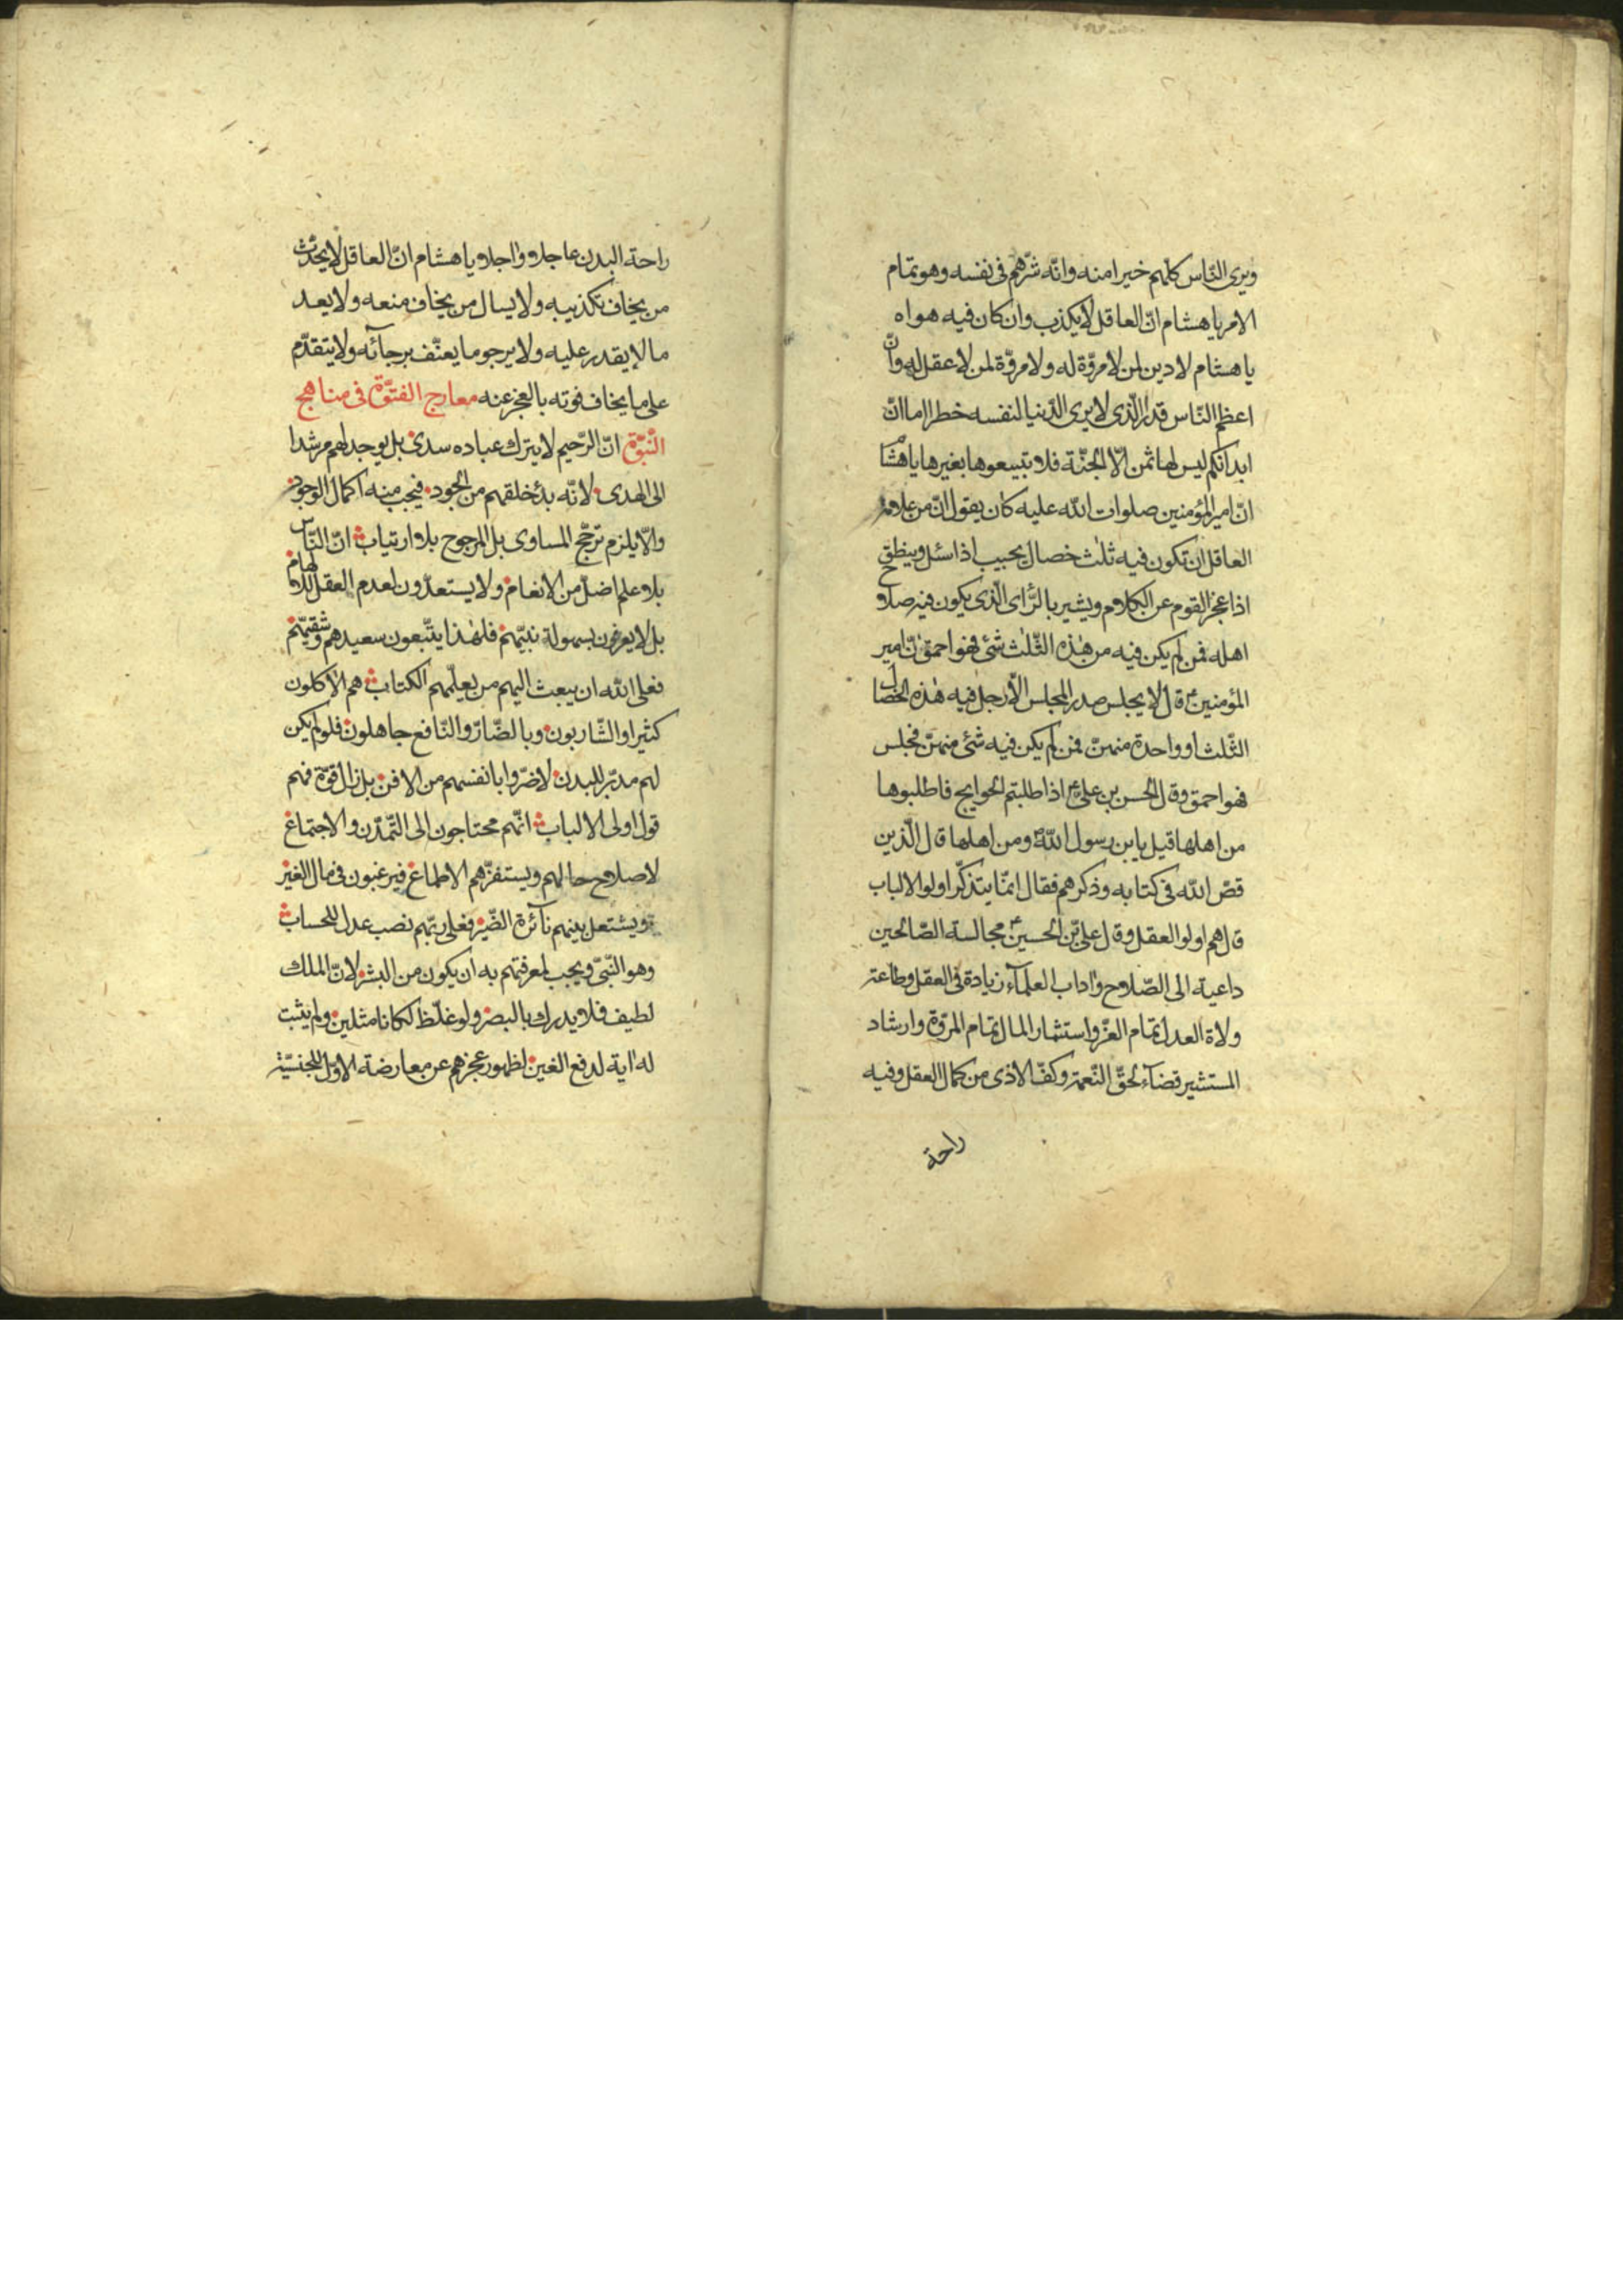 ويرى النّاس كلّهم خيرا منه وانّه شرّهم فى نفسه وهو تمام
الامر يا هشام انّ العاقل لا يكذب وان كان فيه هواه
يا هشام لا دين لمن لا مروّة له ولا مروّة لمن لا عقل له وانّ
اعظم النّاس قدرا الّذى لا يرى الدّنيا لنفسه خطرا اما انّ
ابدانكم ليس لها ثمن الّا الجنّة فلا تبيعوها بغيرها يا هشام
انّ امير المؤمنين صلوات الله عليه كان يقول انّ من علامة
العاقل ان تكون فيه ثلث خصال يجيب اذا سئل وينطق
اذا عجز القوم عن الكلام ويشير بالرّاى الّذى يكون فيه صلاح
اهله فمن لم يكن فيه من هذه الثّلث شئ فهو احمق انّ امير
المؤمنين ع قال لا يجلس صدر المجلس الّا رجل فيه هذه الخصال
الثّلث او واحدة منهنّ فمن لم يكن فيه شئ منهنّ فجلس
فهو احمق وقال الحسن بن علىّ ع اذا طلبتم الحوايج فاطلبوها
من اهلها قيل يا بن رسول الله ومن اهلها قال الّذين
قصّ الله فى كتابه وذكرهم فقال انّما يتذكّر اولوا الالباب
قال هم اولوا العقل وقال علىّ بن الحسين ع مجالسة الصّالحين
داعية الى الصّلاح واداب العلمآء زيادة فى العقل وطاعة
ولاة العدل تمام العزّ واستثمار المال تمام المروّة وارشاد
المستشير قضآء لحقّ النّعمة وكفّ الاذى من كمال العقل وفيه
راحة
راحة البدن عاجلا واجلا يا هشام انّ العاقل لا يحدّث
من يخاف تكذيبه ولا يسال من يخاف منعه ولا يعد
ما لا يقدر عليه ولا يرجو ما يعنّف برجآئه ولا يتقدّم
على ما يخاف فوته بالعجز عنه معارج الفتوّة فى مناهج
النّبوّة انّ الرّحيم لا يترك عباده سدى بل يوجد لهم مرشدا
الى الهدى لانّه بدئ خلقهم من الجود فيجب منه اكمال الوجود
والّا يلزم ترجّح المساوى بل المرجوح بلا ارتياب انّ النّاس
بلا علم اضلّ من الانعام ولا يستعدّون لعدم العقل للالهام
بل لا يعرفون بسهولة نبيّهم فلهذا يتّبعون سعيدهم وشقيّهم
فعلى الله ان يبعث اليهم من يعلّمهم الكتاب هم الاكلون
كثيرا والشّاربون وبالضّارّ والنّافع جاهلون فلو لم يكن
لهم مدبّر للبدن لاضرّوا بانفسهم من الافن بل زال قوّة فهم
قول اولى الالباب انّهم محتاجون الى التّمدّن والاجتماع
لاصلاح حالهم ويستفزّهم الاطماع فيرغبون فى مال الغير
ويشتعل بينهم نآئرة الضّير فعلى ربّهم نصب عدل للحساب
وهو النّبىّ ويجب لمعرفتهم به ان يكون من البشر لانّ الملك
لطيف فلا يدرك بالبصر ولو غلّظ لكانا مثلين ولم يثبت
له اية لدفع الغين لظهور عجزهم عن معارضة الاوّل للجنسيّة